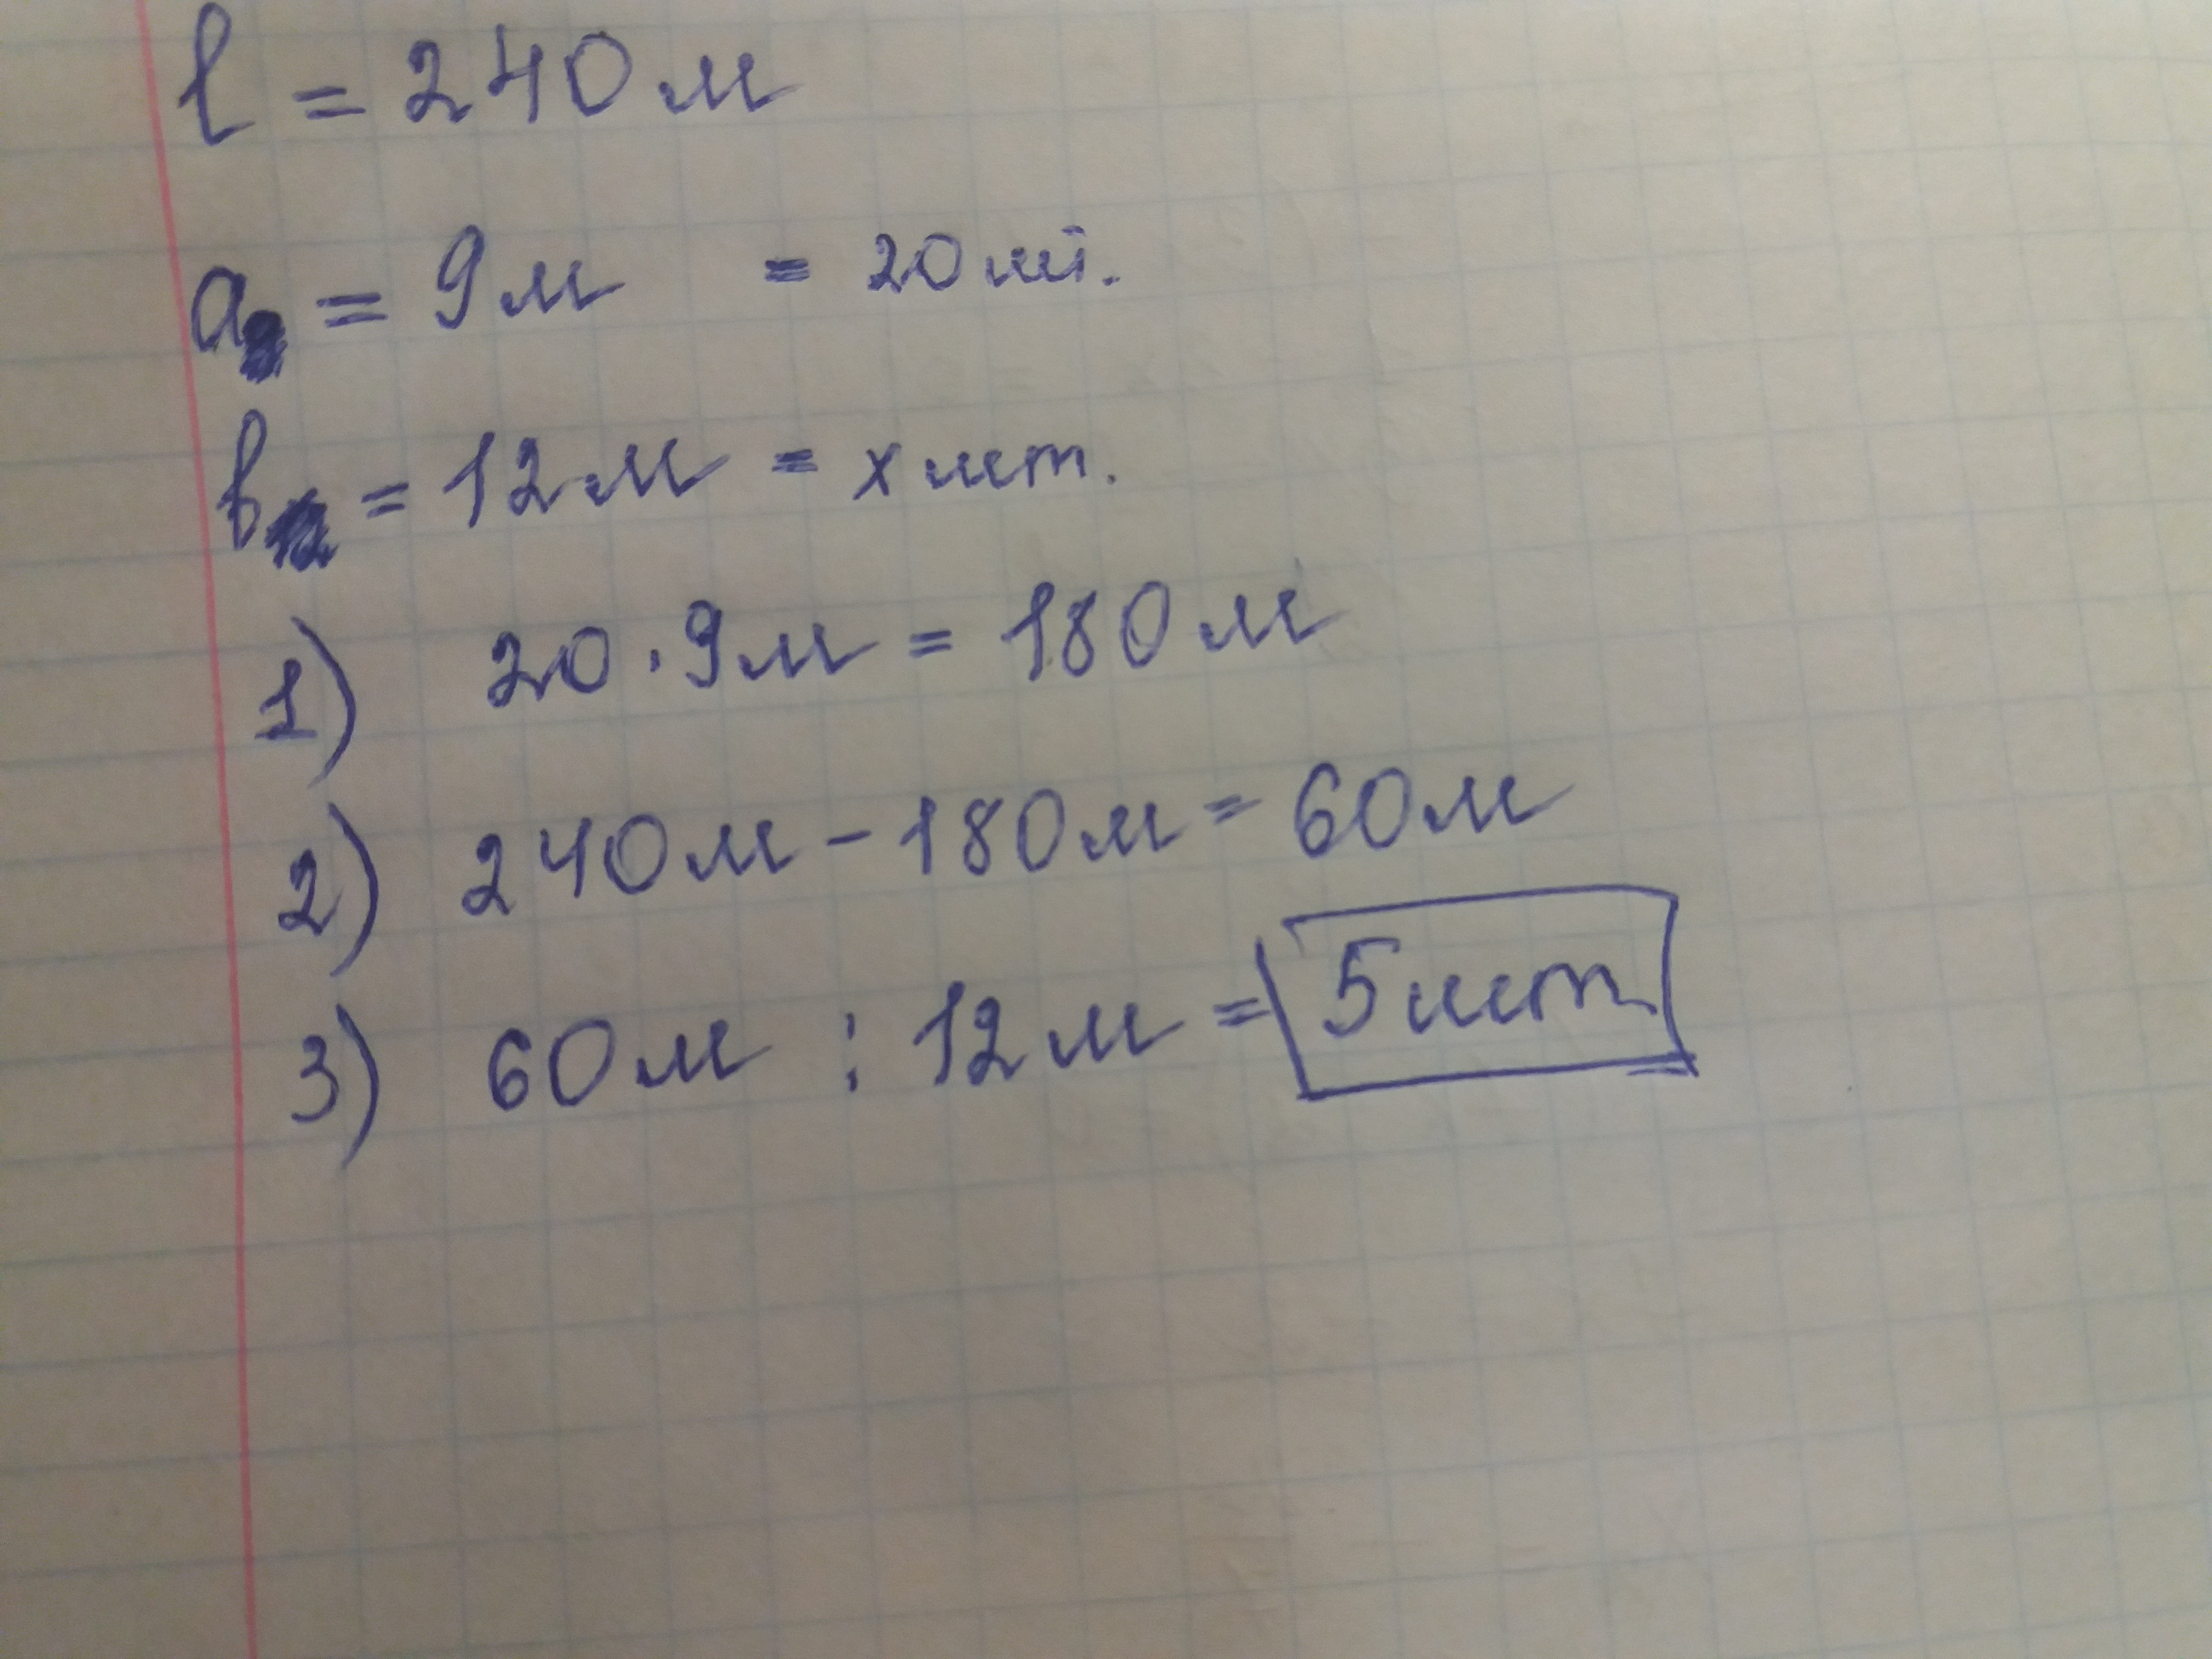 l = 240 м
a = 9 м = 20 шт.
b = 12 м = x шт.
1) 20 · 9 м = 180 м
2) 240 м - 180 м = 60 м
3) 60 м : 12 м = 5 шт